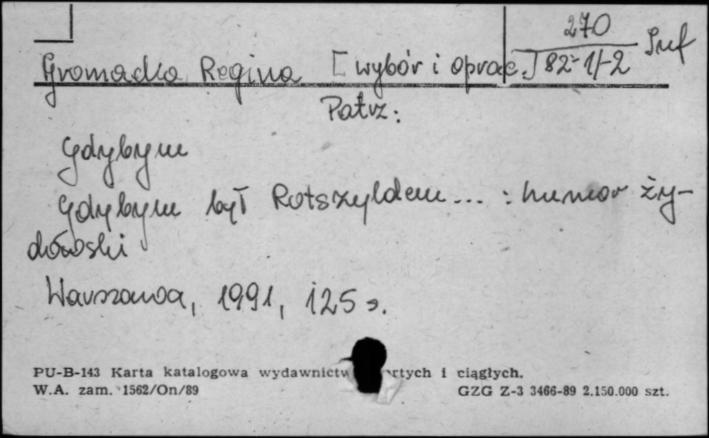 270
Gromadka Regina [wybór i oprac.] 82-1/-2
Patrz:
Gdybym
Gdybym był Rotszyldem... : humor ży-
dowski
Warszawa, 1991, 125 s.
PU-B-143 Karta katalogowa wydawnictw rtych i ciągłych.
W.A. zam. 1562/On/89 GZG Z-3 3466-89 2.150.000 szt.